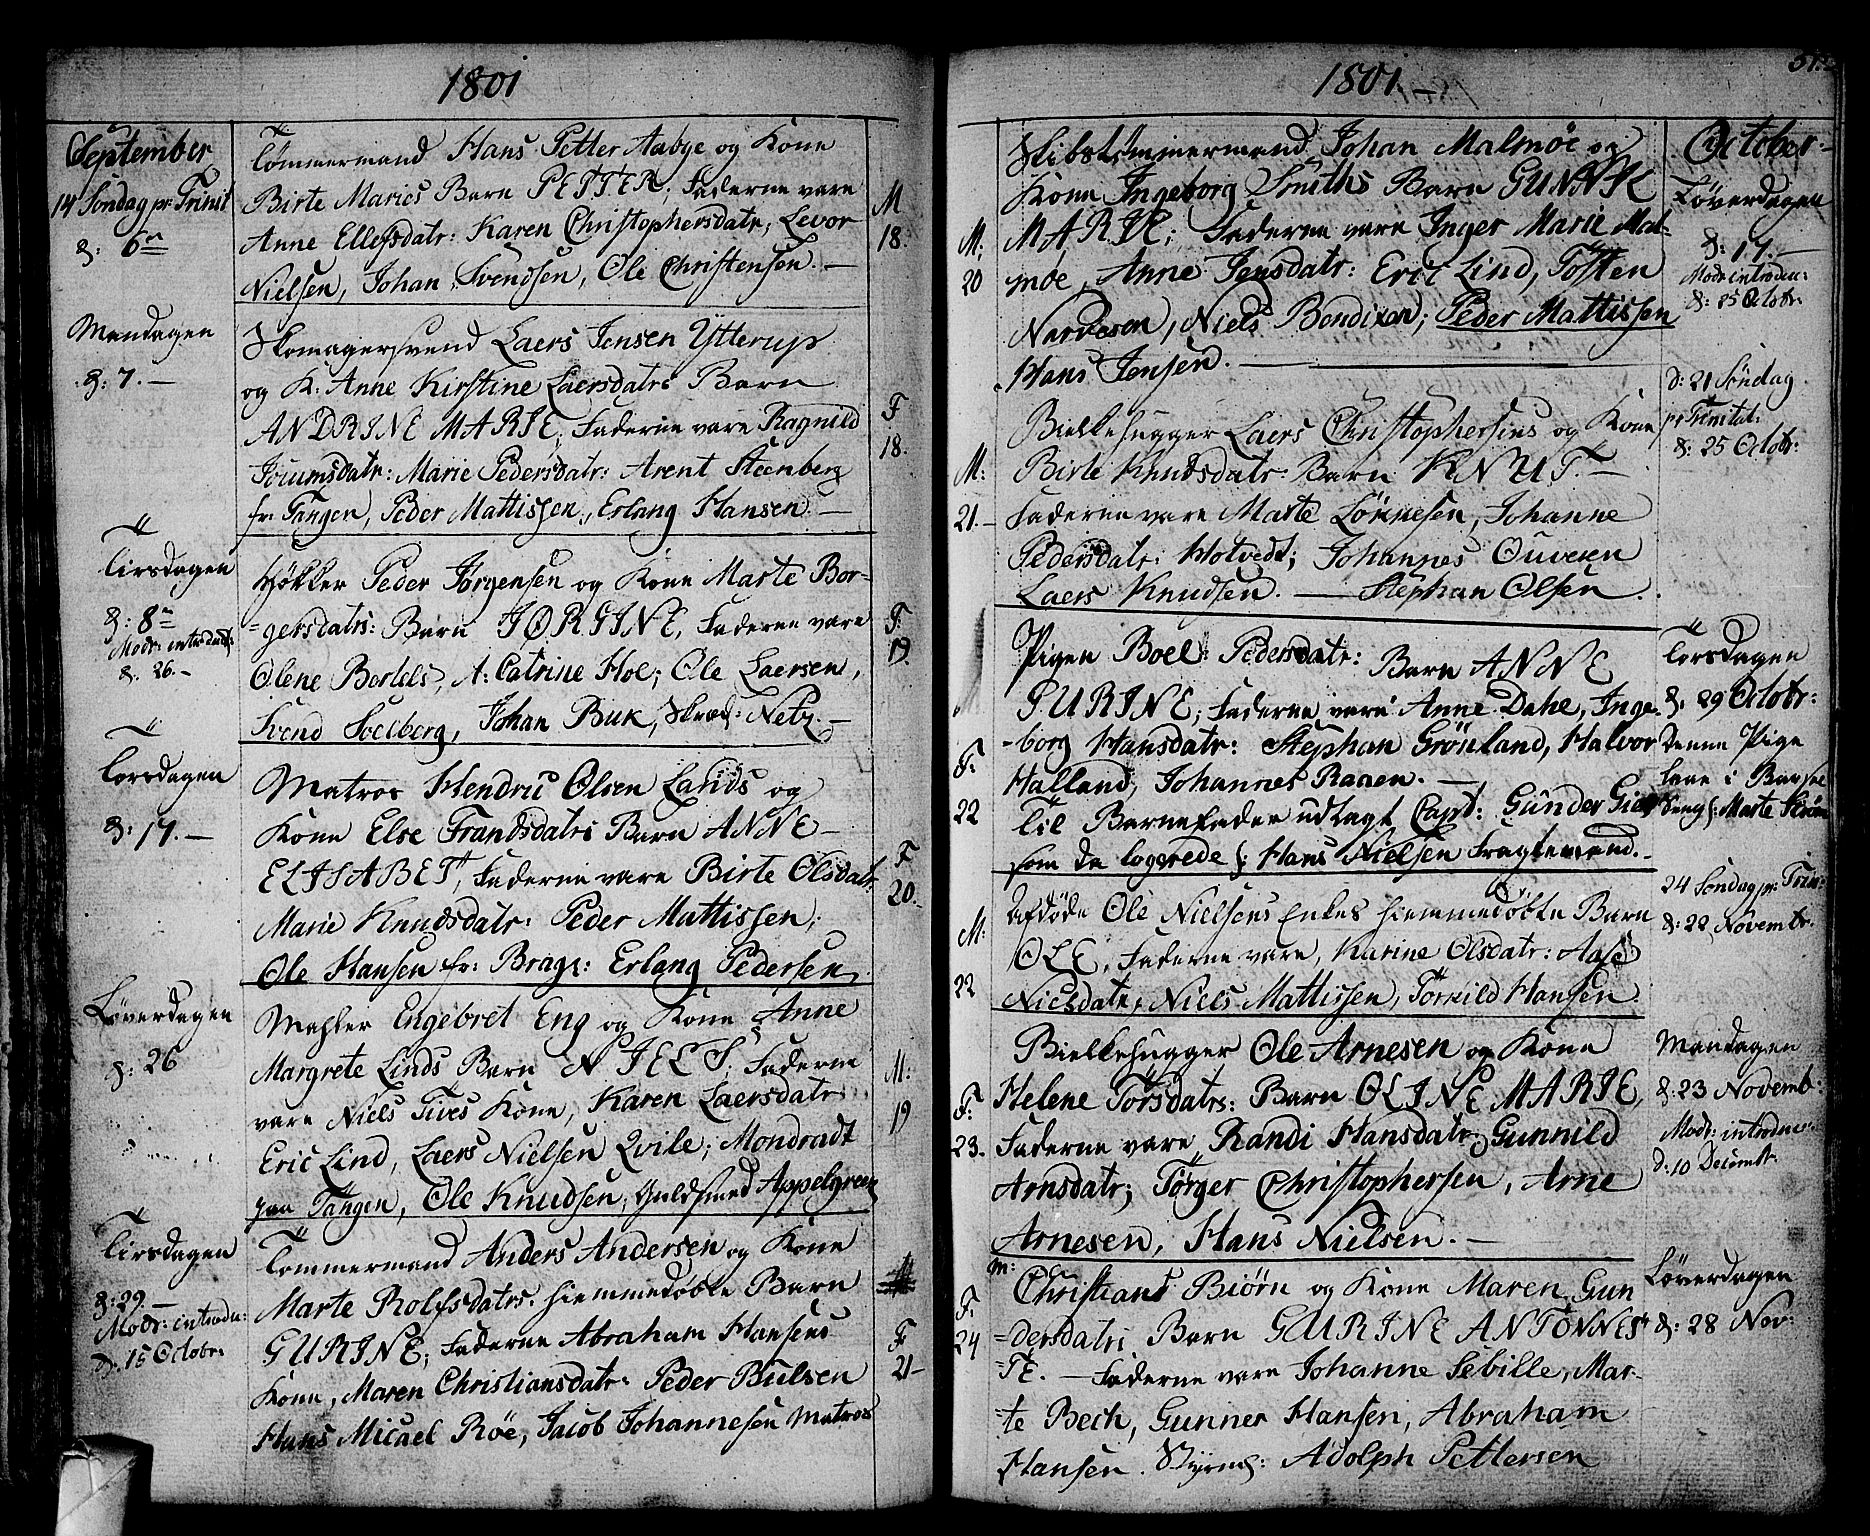 1801
September
14 Søndag pr: Trinit
d: 6te
Tømmermand Hans Petter Aabye og Kone
Birte Maries Barn PETTER; Faderne vare
Anne Ellefsdatr: Karen Christophersdatr; Levor
Nielsen, Johan Svendsen, Ole Christensen. —
M
18.
Mandagen
d: 7. —
Skomagersvend Laers Jensen Ytterup
og K. Anne Kirstine Laersdatrs Barn
ANDRINE MARIE; Faderne vare Ragnild
Joramsdatr: Marie Pedersdatr: Arent Steenberg
fr: Tangen, Peder Mattissen, Erlang Hansen. —
F
18.
Tirsdagen
d: 8de
Modr: introduc:
d. 26. —
Høkker Peder Jørgensen og Kone Marte Bor-
=gersdatrs: Barn JØRGINE, Faderne vare
Olene Bertels, A: Catrine Hoe; Ole Laersen,
Svend Soelberg, Johan Buk, Skræd: Netz. —
F.
19.
Torsdagen
d: 17. —
Matros Hendric Olsen Lands og
Kone Else Frandsdatrs Barn ANNE
ELISABET, Faderne vare Birte Olsdatr:
Marie Knudsdatr: Peder Mattissen,
Ole Hansen fr: Brage: Erlang Pedersen,
F
20.
Løverdagen
d: 26
Mahler Engebret Eng og Kone Anne
Margrete Linds Barn NIELS; Faderne
vare Niels Tves Kone, Karen Laersdatr:
Eric Lind, Laers Nielsen Qvile; Mondradt
paa Tangen, Ole Knudsen, Guldsmed Appelgreen
M:
19
Tirsdagen
d: 29. —
Modr: introdu:
d. 15 Octobr:
Tømmermand Anders Andersen og Kone
Marte Rolfsdatrs. hiemmedøbte Barn
GURINE; Faderne Abraham Hansens
Kone, Maren Christiansdatr: Peder Bulsen
Hans Micael Røe, Jacob Johannesen Matros
F
21-
1801. —
October. —
Løverdagen
d: 17. —
Modr: introdu:
d: 25 Octobr:
M:
20
Skibstømmermand Johan Malmøe og
Kone Ingeborg Smiths Barn GUNNE
MARIE; Faderne vare Inger Marie Mal-
møe, Anne Jensdatr: Eric Lind, Tosten
Narvesen, Niels Bendixen; Peder Mattissen
Hans Jensen. —
d: 21 Søndag
pr Trinitat:
d: 25 Octobr:
M:
21. -
Bielkehugger Laers Christophersens og Kone
Birte Knudsdatr: Barn KNUT. —
Faderne vare Marte Lønnesen, Johanne
Pedersdatr: Hotvedt; Johannes Ouvesen
Laers Knudsen. — Stephan Olsen.
Torsdagen
d: 29 Octobr:
Denne Pige
laae i Barsel
Seng h: Marte Strøm
F.
22
Pigen Boel Pedersdatr: Barn ANNE
GURINE; Faderne vare Anne Dahe, Inge-
-borg Hansdatr: Stephan Grönland, Halvor
Halland, Johannes Raaen. —
Til Barnefader udlagt Capt: Gunder
som da logerede h: Hans Nielsen Fragtemand. —
24 Søndag pr: Trin:
d: 22 Novembr.
M:
22
Afdøde Ole Nielsens Enkes hiemmedøbte Barn
OLE, Faderne vare, Karine Olsdatr: Aase
Nielsdatr, Niels Mattissen, Tørkild Hansen
Mandagen
d: 23 Novemb:
Modr: introduc:
d: 10 Decembr.
F:
23.
Bielkehugger Ole Arnesen og Kone
Helene Törsdatrs: Barn OLINE MARIE,
Faderne vare Randi Hansdatr; Gunnild
Arnsdatr; Tørger Christophersen, Arne
Arnesen, Hans Nielsen. —
Løverdagen
d: 28 Nov:
F.
24
M:
Christians Biørn og Kone Maren Gun
-dersdatrs Barn GURINE ANTONNET-
=TE. — Faderne vare Johanne Sebille, Mar-
=te Bech, Gunner Hansen, Abraham
Hansen. Adolph Pettersen